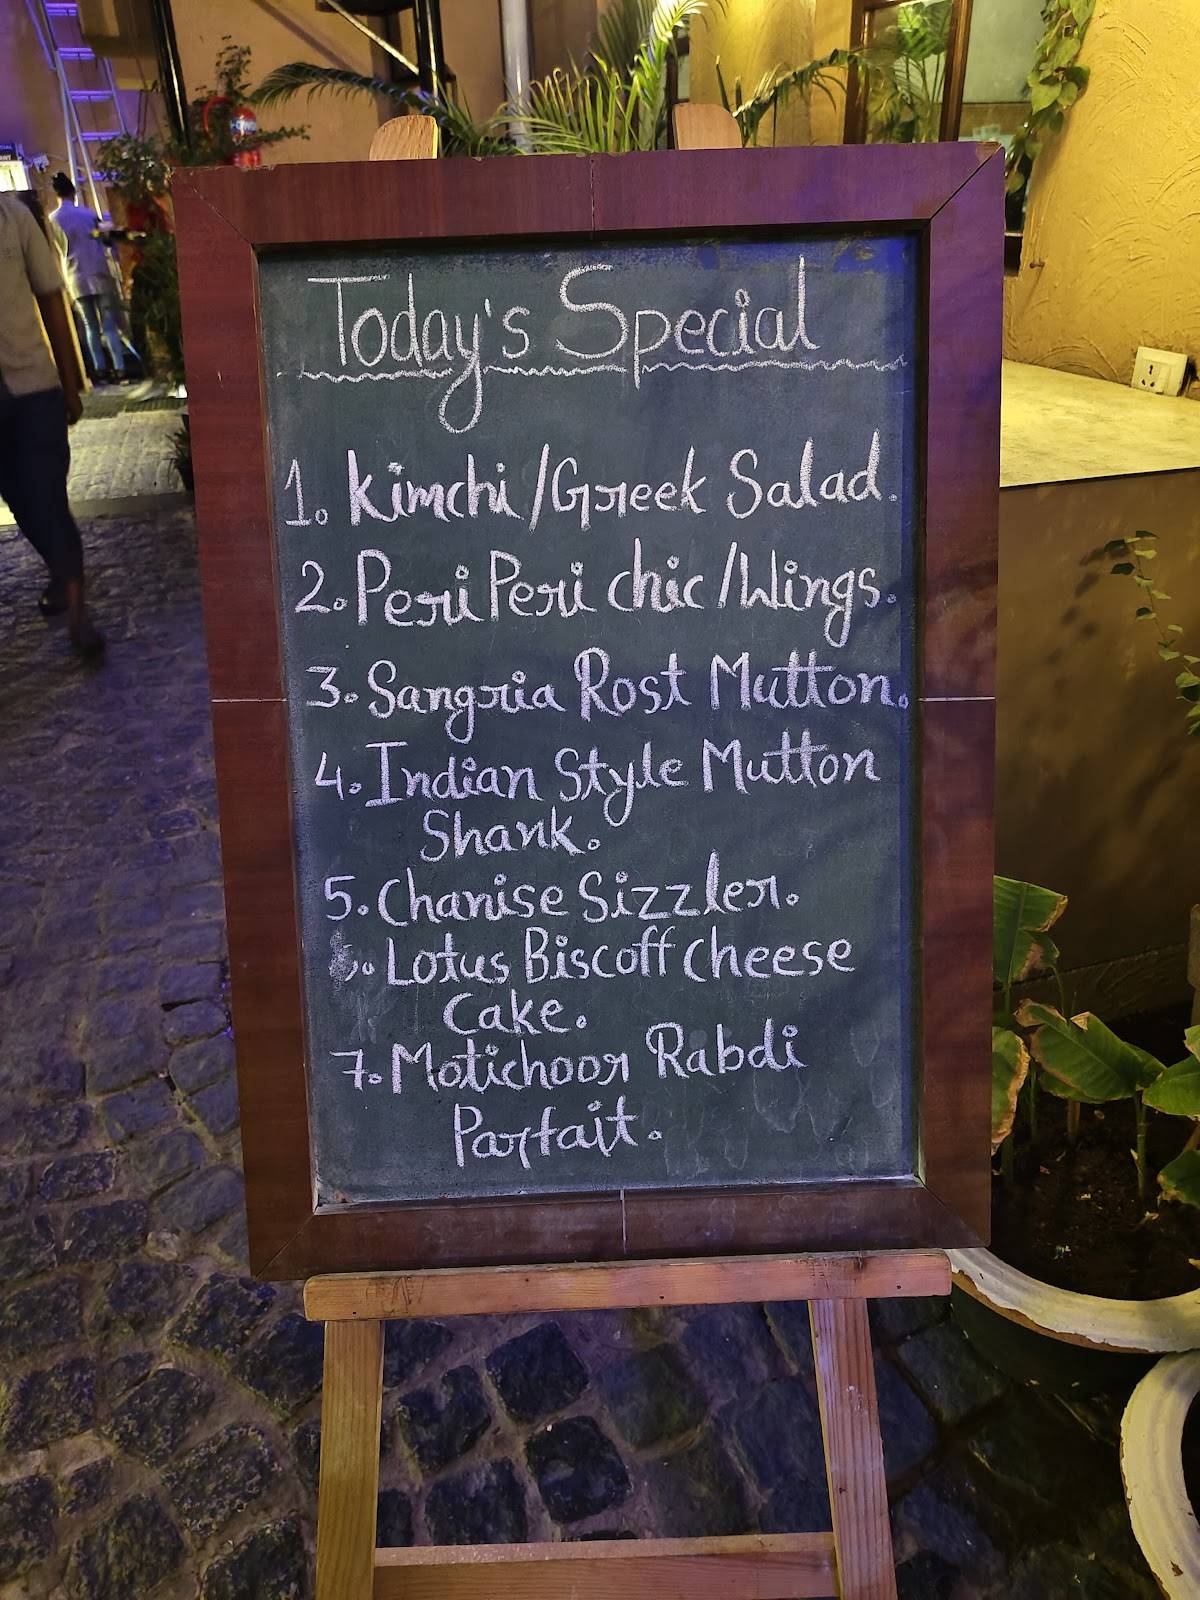 Today's Special
1. Kimchi/Greek Salad.
2. Peri Peri chic/Wings.
3. Sangria Rost Mutton.
4. Indian Style Mutton
Shank.
5. Chanise Sizzler.
6. Lotus Biscoff Cheese
Cake.
7. Motichoor Rabdi
Parfait.